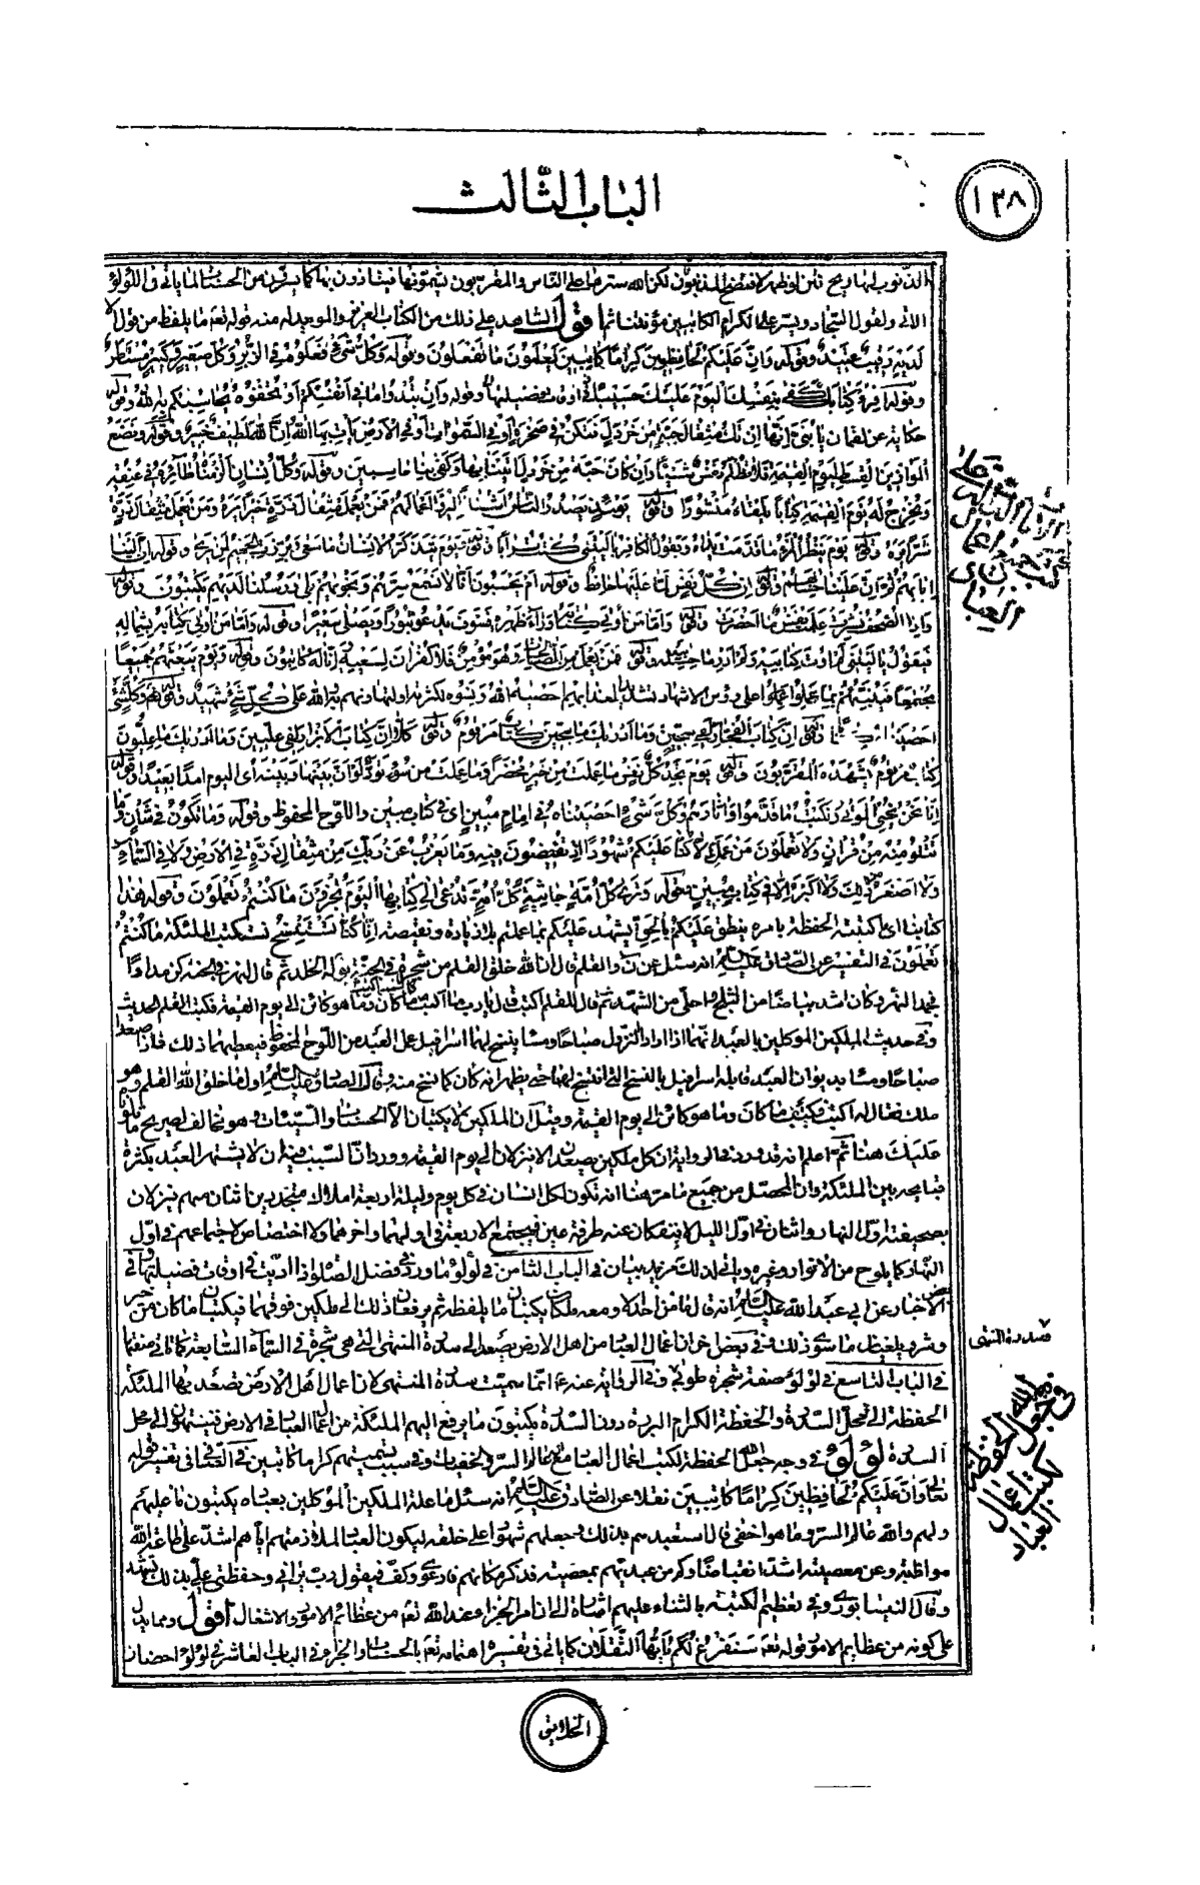 ١٣٨
الباب الثالث
الذنوب لها ريح نتن لو ظهر لافتضح المذنبون لكن الله ستر ما على الناس والمقربون يشمونها فيتأذون بها كما يسرون من الحسنات لما يأتي في اللؤلؤ
الآتي ولقول السجاد ويسر على الكرام الكاتبين مؤنتنا ثم اقول الشاهد على ذلك من الكتاب العزيز والموعد له منه قوله تعم ما يلفظ من قول الا
لديه رقيب عتيد وقوله وان عليكم لحافظين كراما كاتبين يعلمون ما تفعلون وقوله وكل شيء فعلوه في الزبر وكل صغير وكبير مستطر
وقوله اقرء كتابك كفى بنفسك اليوم عليك حسيبا وقوله وان تبدوا ما في انفسكم او تخفوه يحاسبكم به الله وقوله
حكاية عن لقمان يا بني انها ان تك مثقال حبة من خردل فتكن في صخرة او في السموات او في الارض يأت بها الله ان الله لطيف خبير وقوله ونضع
الموازين القسط ليوم القيمة فلا تظلم نفس شيئا وان كان حبة من خردل اتينا بها وكفى بنا حاسبين وقوله وكل انسان الزمناه طائره في عنقه
ونخرج له يوم القيمة كتابا يلقاه منشورا وقوله يومئذ يصدر الناس اشتاتا ليروا اعمالهم فمن يعمل مثقال ذرة خيرا يره ومن يعمل مثقال ذرة
شرا يره وقوله يوم ينظر المرء ما قدمت يداه ويقول الكافر يا ليتني كنت ترابا وقوله يوم يتذكر الانسان ما سعى وبرزت الجحيم لمن يرى وقوله ان الينا
ايابهم ثم ان علينا حسابهم وقوله ان كل نفس لما عليها حافظ وقوله ام يحسبون انا لا نسمع سرهم ونجويهم بلى ورسلنا لديهم يكتبون وقوله
واذا الصحف نشرت علمت نفس ما احضرت وقوله واما من اوتي كتابه وراء ظهره فسوف يدعو ثبورا ويصلى سعيرا وقوله واما من اوتي كتابه بشماله
فيقول يا ليتني لم اوت كتابيه ولم ادر ما حسابيه وقوله فمن يعمل من الصالحات وهو مؤمن فلا كفران لسعيه وانا له كاتبون وقوله يوم يبعثهم الله جميعا
مجتمعا فينبئهم بما عملوا على رؤس الاشهاد احصيه الله ونسوه لكثرته او لتهاونهم به والله على كل شيء شهيد وقوله وكل شيء
احصيناه كتابا وقوله ان كتاب الفجار لفي سجين وما ادريك ما سجين كتاب مرقوم وقوله كلا ان كتاب الابرار لفي عليين وما ادريك ما عليون
كتاب مرقوم يشهده المقربون وقوله يوم تجد كل نفس ما عملت من خير محضرا وما عملت من سوء تود لو ان بينها وبينه اي اليوم امدا بعيدا وقوله
انا نحن نحيي الموتى ونكتب ما قدموا واثارهم وكل شيء احصيناه في امام مبين اي في كتاب مبين واللوح المحفوظ وقوله وما تكون في شأن وما
تتلو منه من قران ولا تعملون من عمل الا كنا عليكم شهودا اذ تفيضون فيه وما يعزب عن ربك من مثقال ذرة في الارض ولا في السماء
ولا اصغر من ذلك ولا اكبر الا في كتاب مبين وقوله وترى كل امة جاثية كل امة تدعى الى كتابها اليوم تجزون ما كنتم تعملون وقوله هذا
كتابنا اي كتبته الحفظة بامره ينطق عليكم بالحق يشهد عليكم بما عملتم بلا زيادة ونقيصة انا كنا نستنسخ نستكتب الملئكة ما كنتم
تعملون في التفسير عن الصادق عليه السلام انه سئل عن ن والقلم قال ان الله خلق القلم من شجرة في الجنة يقال له الخلد ثم قال لنهر في الجنة كن مدادا
فجمد النهر وكان اشد بياضا من الثلج واحلى من الشهد ثم قال للقلم اكتب قال يا رب ما اكتب قال اكتب ما كان وما هو كائن الى يوم القيمة فكتب القلم الحديث
وفي حديث الملكين الموكلين بالعبد انهما اذا ارادا النزول صباحا ومساء ينسخ لهما اسرافيل عمل العبد من اللوح المحفوظ فيعطيهما ذلك فاذا صعدا
صباحا ومساء بديوان العبد قابله اسرافيل بالنسخ التي انتسخ لهما حتى يظهر انه كان كما نسخ منه وقال الصادق عليه السلام اول ما خلق الله القلم وهو
ملك فقال له اكتب فكتب ما كان وما هو كائن الى يوم القيمة وقيل ان الملكين لا يكتبان الا الحسنات والسيئات وهو مخالف لصريح ما تلوناه
عليك هنا ثم اعلم انه قد ورد في الرواية ان كل ملكين صعدا لا ينزلان الى يوم القيمة وورد ان السبب فيه ان لا يشتهر العبد بكثرة
فضايحه بين الملئكة وان المحصل من جميع ما مر هنا انه تكون لكل انسان في كل يوم وليلة اربعة املاك متجددين اثنان منهم ينزلان
بصحيفته اول النهار واثنان في اول الليل لا ينفكان عنه طرفة عين فيجتمع الاربعة في اولهما واخرهما ولا اختصاص لاجتماعهم في اول
النهار كما يلوح من الانوار وغيره ويأتي لذلك مزيد بيان في الباب الثامن في لؤلؤ ما ورد في فضل الصلوة اذا اديت في اوقات فضيلتها وفي
الاخبار عن ابي عبد الله عليه السلام انه قال ما من احد الا ومعه ملكان يكتبان ما يلفظه ثم يرفعان ذلك الى ملكين فوقهما فيكتبان ما كان من خير
وشر ويلقيان ما سوى ذلك وفي بعض اخر ان اعمال العباد من اهل الارض يصعد الى سدرة المنتهى التي هي شجرة في السماء السابعة كما تأتي صفتها
في الباب التاسع في لؤلؤ صفة شجرة طوبى وفي الرواية عنه ع انما سميت سدرة المنتهى لان اعمال اهل الارض تصعد بها الملئكة
الحفظة الى محل السدرة والحفظة الكرام البررة دون السدرة يكتبون ما يرفع اليهم الملئكة من اعمال العباد في الارض فينتهون الى محل
السدرة لؤلؤ في وجه جعل الله الحفظة لكتب اعمال العباد مع انه عالم السر والخفيات وفي سبب تسميتهم كراما كاتبين وفي الصافي في تفسير قوله
تعالى وان عليكم لحافظين كراما كاتبين نقلا عن الصادق عليه السلام انه سئل ما علة الملكين الموكلين بعباده يكتبون ما عليهم
ولهم والله عالم السر وما هو اخفى قال استعبدهم بذلك وجعلهم شهودا على خلقه ليكون العباد لملازمتهم اياهم اشد على طاعة الله
مواظبة وعن معصيته اشد انقباضا وكم من عبد يهم بمعصية فذكر مكانهم فارعوى وكف فيقول ربي يراني وحفظتي على بذلك تشهد
وقال النيسابوري وفي تعظيم الكتبة بالثناء عليهم اشارة الى ان امر الجزاء عند الله تعم من عظائم الامور والاشغال اقول ومما يدل
على كونه من عظايم الامور قوله تعم سنفرغ لكم ايها الثقلان كما يأتي في تفسيره اهتمامه تعم بالحساب والجزاء في الباب العاشر في لؤلؤ احضار
العباد
سدرة المنتهى
في جعل الله الحفظة
لكتب اعمال
العباد
الخلايق